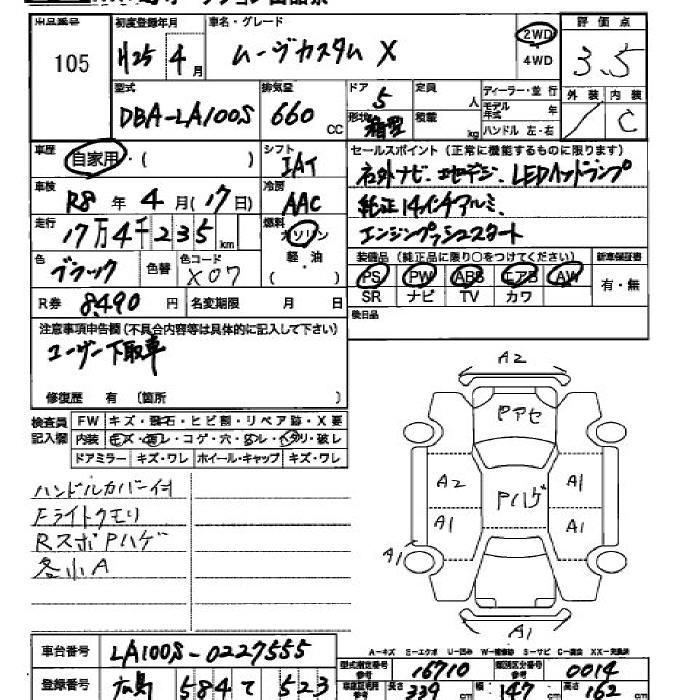 出品番号 初度登録年月 車名・グレード 評価点
105 H25 4月 ムーヴカスタム X 2WD 4WD 3.5
型式 排気量 ドア 定員 ディーラー・並行 外装 内装
DBA-LA100S 660 CC 5 人 モデル年式 年
形状 箱型 積載 kg ハンドル 左・右 C
車歴 自家用・( ) シフト IAT セールスポイント (正常に機能するものに限ります)
車検 R8年 4月(17日) 冷房 AAC 社外ナビ、地デジ、LEDヘッドランプ
走行 17万4千235km 燃料 ガソリン 軽・油 ( ) 純正14インチアルミ、
エンジンプッシュスタート
色 ブラック 色替 色コード X07 装備品 (純正品に限り○をつけてください) 新車保証書
PS PW ABS エアB AW 有・無
R券 8,490円 名変期限 月 日 SR ナビ TV カワ
注意事項申告欄(不具合内容等は具体的に記入して下さい) 後日品
ユーザー下取車
修復歴 有 (箇所 )
検査員記入欄 FW キズ・飛石・ヒビ割・リペア跡・X要
内装 キズ・汚レ・コゲ・穴・スレ・ヘタリ・破レ
ドアミラー キズ・ワレ ホイール・キャップ キズ・ワレ
ハンドルカバー付
Fライトクモリ
RスポPハゲ
各小A
A2
Pアセ
A2 Pハゲ A1
A1 A1
A1
A1
A-キズ E-エクボ U-凹み W-補修跡 S-サビ C-腐食 XX-交換済
車台番号 LA100S-0227555
型式指定番号 参考 16710 類別区分番号 参考 0014
登録番号 広島 584 て 523
長さ 339 cm 幅 147 cm 高さ 162 cm